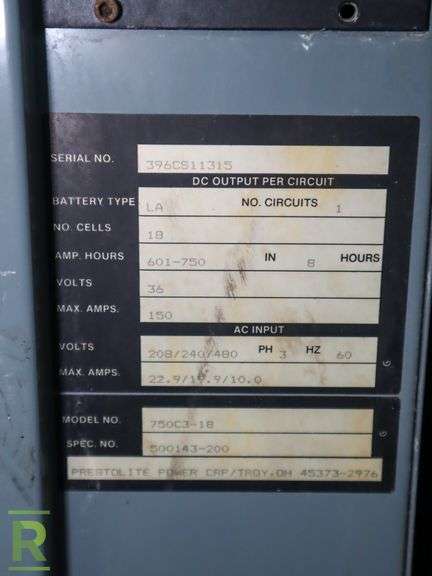 SERIAL NO. 396CS11315
DC OUTPUT PER CIRCUIT
BATTERY TYPE LA NO. CIRCUITS 1
NO. CELLS 18
AMP. HOURS 601-750 IN 8 HOURS
VOLTS 36
MAX. AMPS. 150
AC INPUT
VOLTS 208/240/480 PH 3 HZ 60
MAX. AMPS. 22.9/19.9/10.0
G
MODEL NO. 750C3-18
SPEC. NO. 500143-200
G
PRESTOLITE POWER CRP/TROY.OH 45373-2976
R